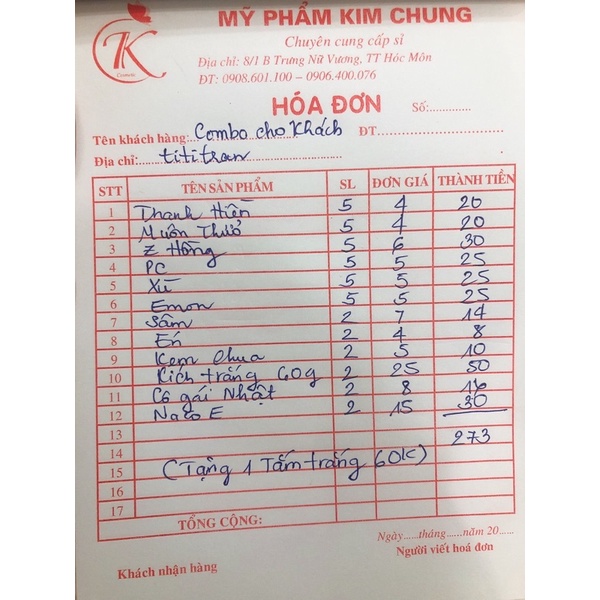 MỸ PHẨM KIM CHUNG
Chuyên cung cấp sỉ
Địa chỉ: 8/1 B Trưng Nữ Vương, TT Hóc Môn
ĐT: 0908.601.100 – 0906.400.076
TK
Cosmetic
HÓA ĐƠN Số:............
Tên khách hàng: Combo cho Khách ĐT............................
Địa chỉ: tititran
STT TÊN SẢN PHẨM SL ĐƠN GIÁ THÀNH TIỀN
1 Thanh Hiền 5 4 20
2 Muôn Thuở 5 4 20
3 Z Hồng 5 6 30
4 PC 5 5 25
5 Xù 5 5 25
6 Emon 5 5 25
7 Sâm 2 7 14
8 Én 2 4 8
9 Kem Chua 2 5 10
10 Kích trắng 60g 2 25 50
11 Cô gái Nhật 2 8 16
12 Nato E 2 15 30
13 273
14
15 (Tặng 1 Tắm trắng 60K)
16
17
TỔNG CỘNG:
Ngày......tháng......năm 20......
Khách nhận hàng Người viết hoá đơn